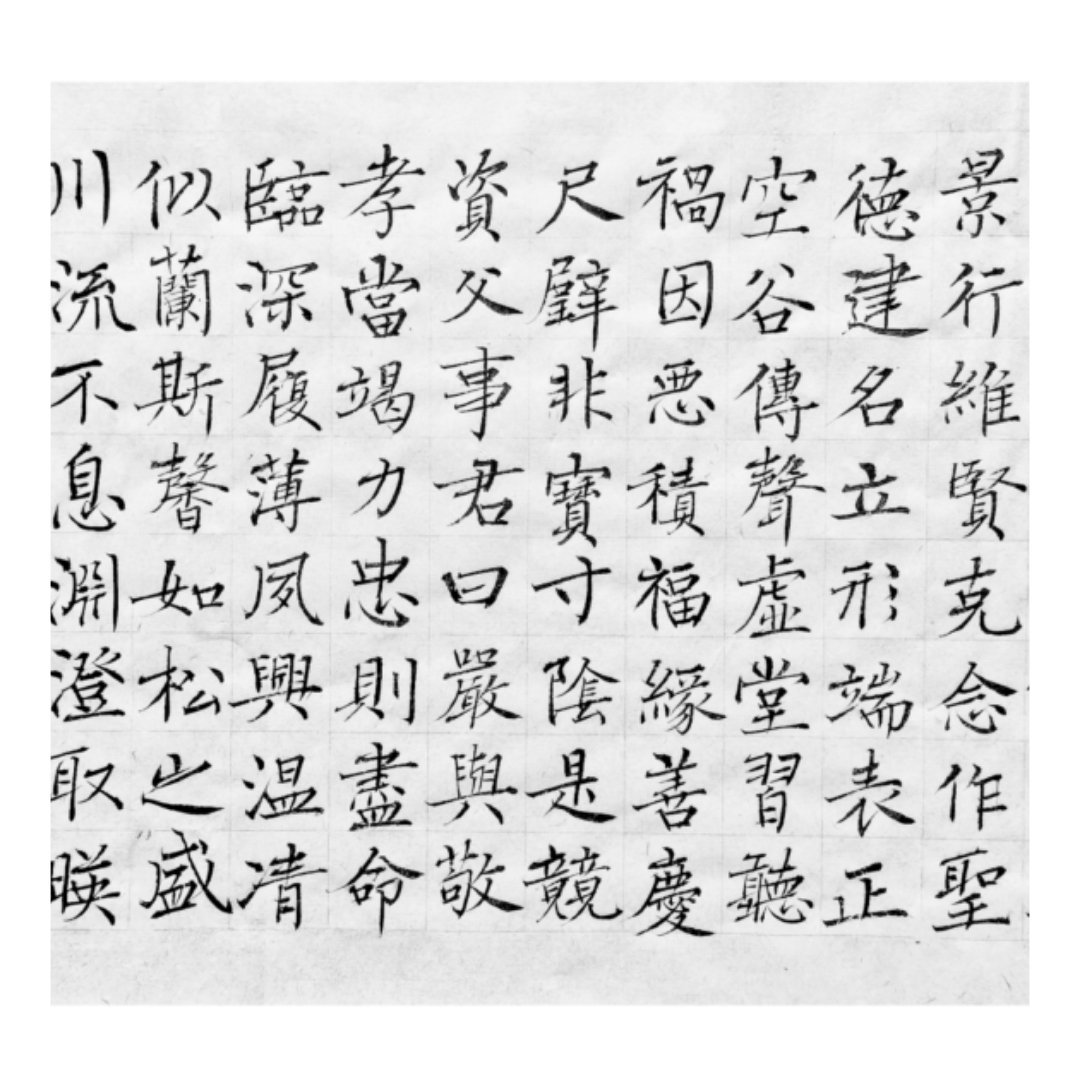 景行維賢克念作聖
德建名立形端表正
空谷傳聲虛堂習聽
禍因惡積福緣善慶
尺璧非寶寸陰是競
資父事君曰嚴與敬
孝當竭力忠則盡命
臨深履薄夙興温凊
似蘭斯馨如松之盛
川流不息淵澄取暎